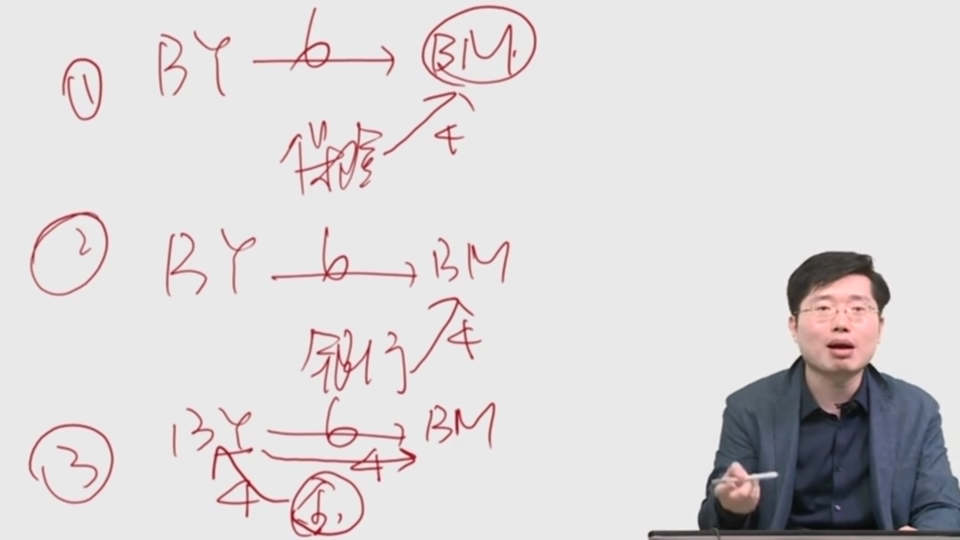 ① BY 6 BM
保险 4
② BY 6 BM
银行 4
③ BY 6 BM
4
4